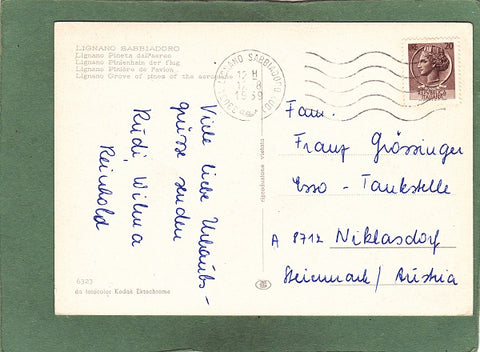 LIGNANO SABBIADORO
Lignano Pineta dall'aereo
Lignano Pinienhain der flug
Lignano Pinière de l'avion
Lignano Grove of pines of the aeroplane
LIGNANO SABBIADORO
12-8
1969
20
Viele liebe Urlaubs-
grüsse senden
Rudi, Wilma
Reinhold
riproduzione vietata
Fam.
Franz Grössinger
Esso - Tankstelle
A 8712 Niklasdorf
Steiermark / Austria
6323
da fotocolor Kodak Ektachrome